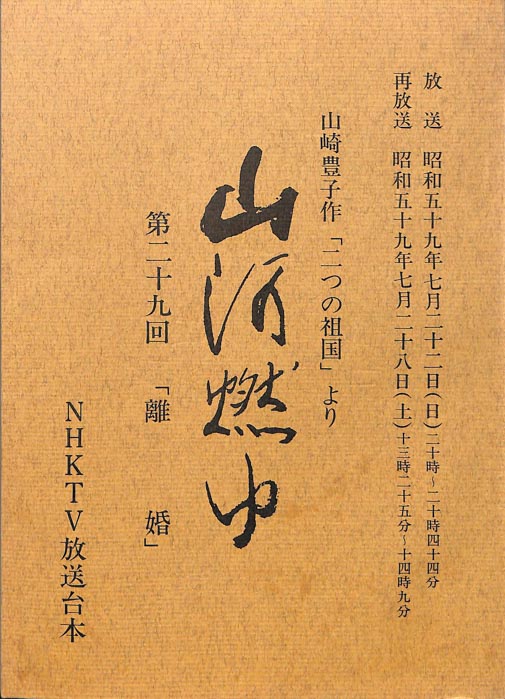 放送 昭和五十九年七月二十二日(日)二十時~二十時四十四分
再放送 昭和五十九年七月二十八日(土)十三時二十五分~十四時九分
山崎豊子作「二つの祖国」より
山河燃ゆ
第二十九回 「離婚」
NHKTV放送台本